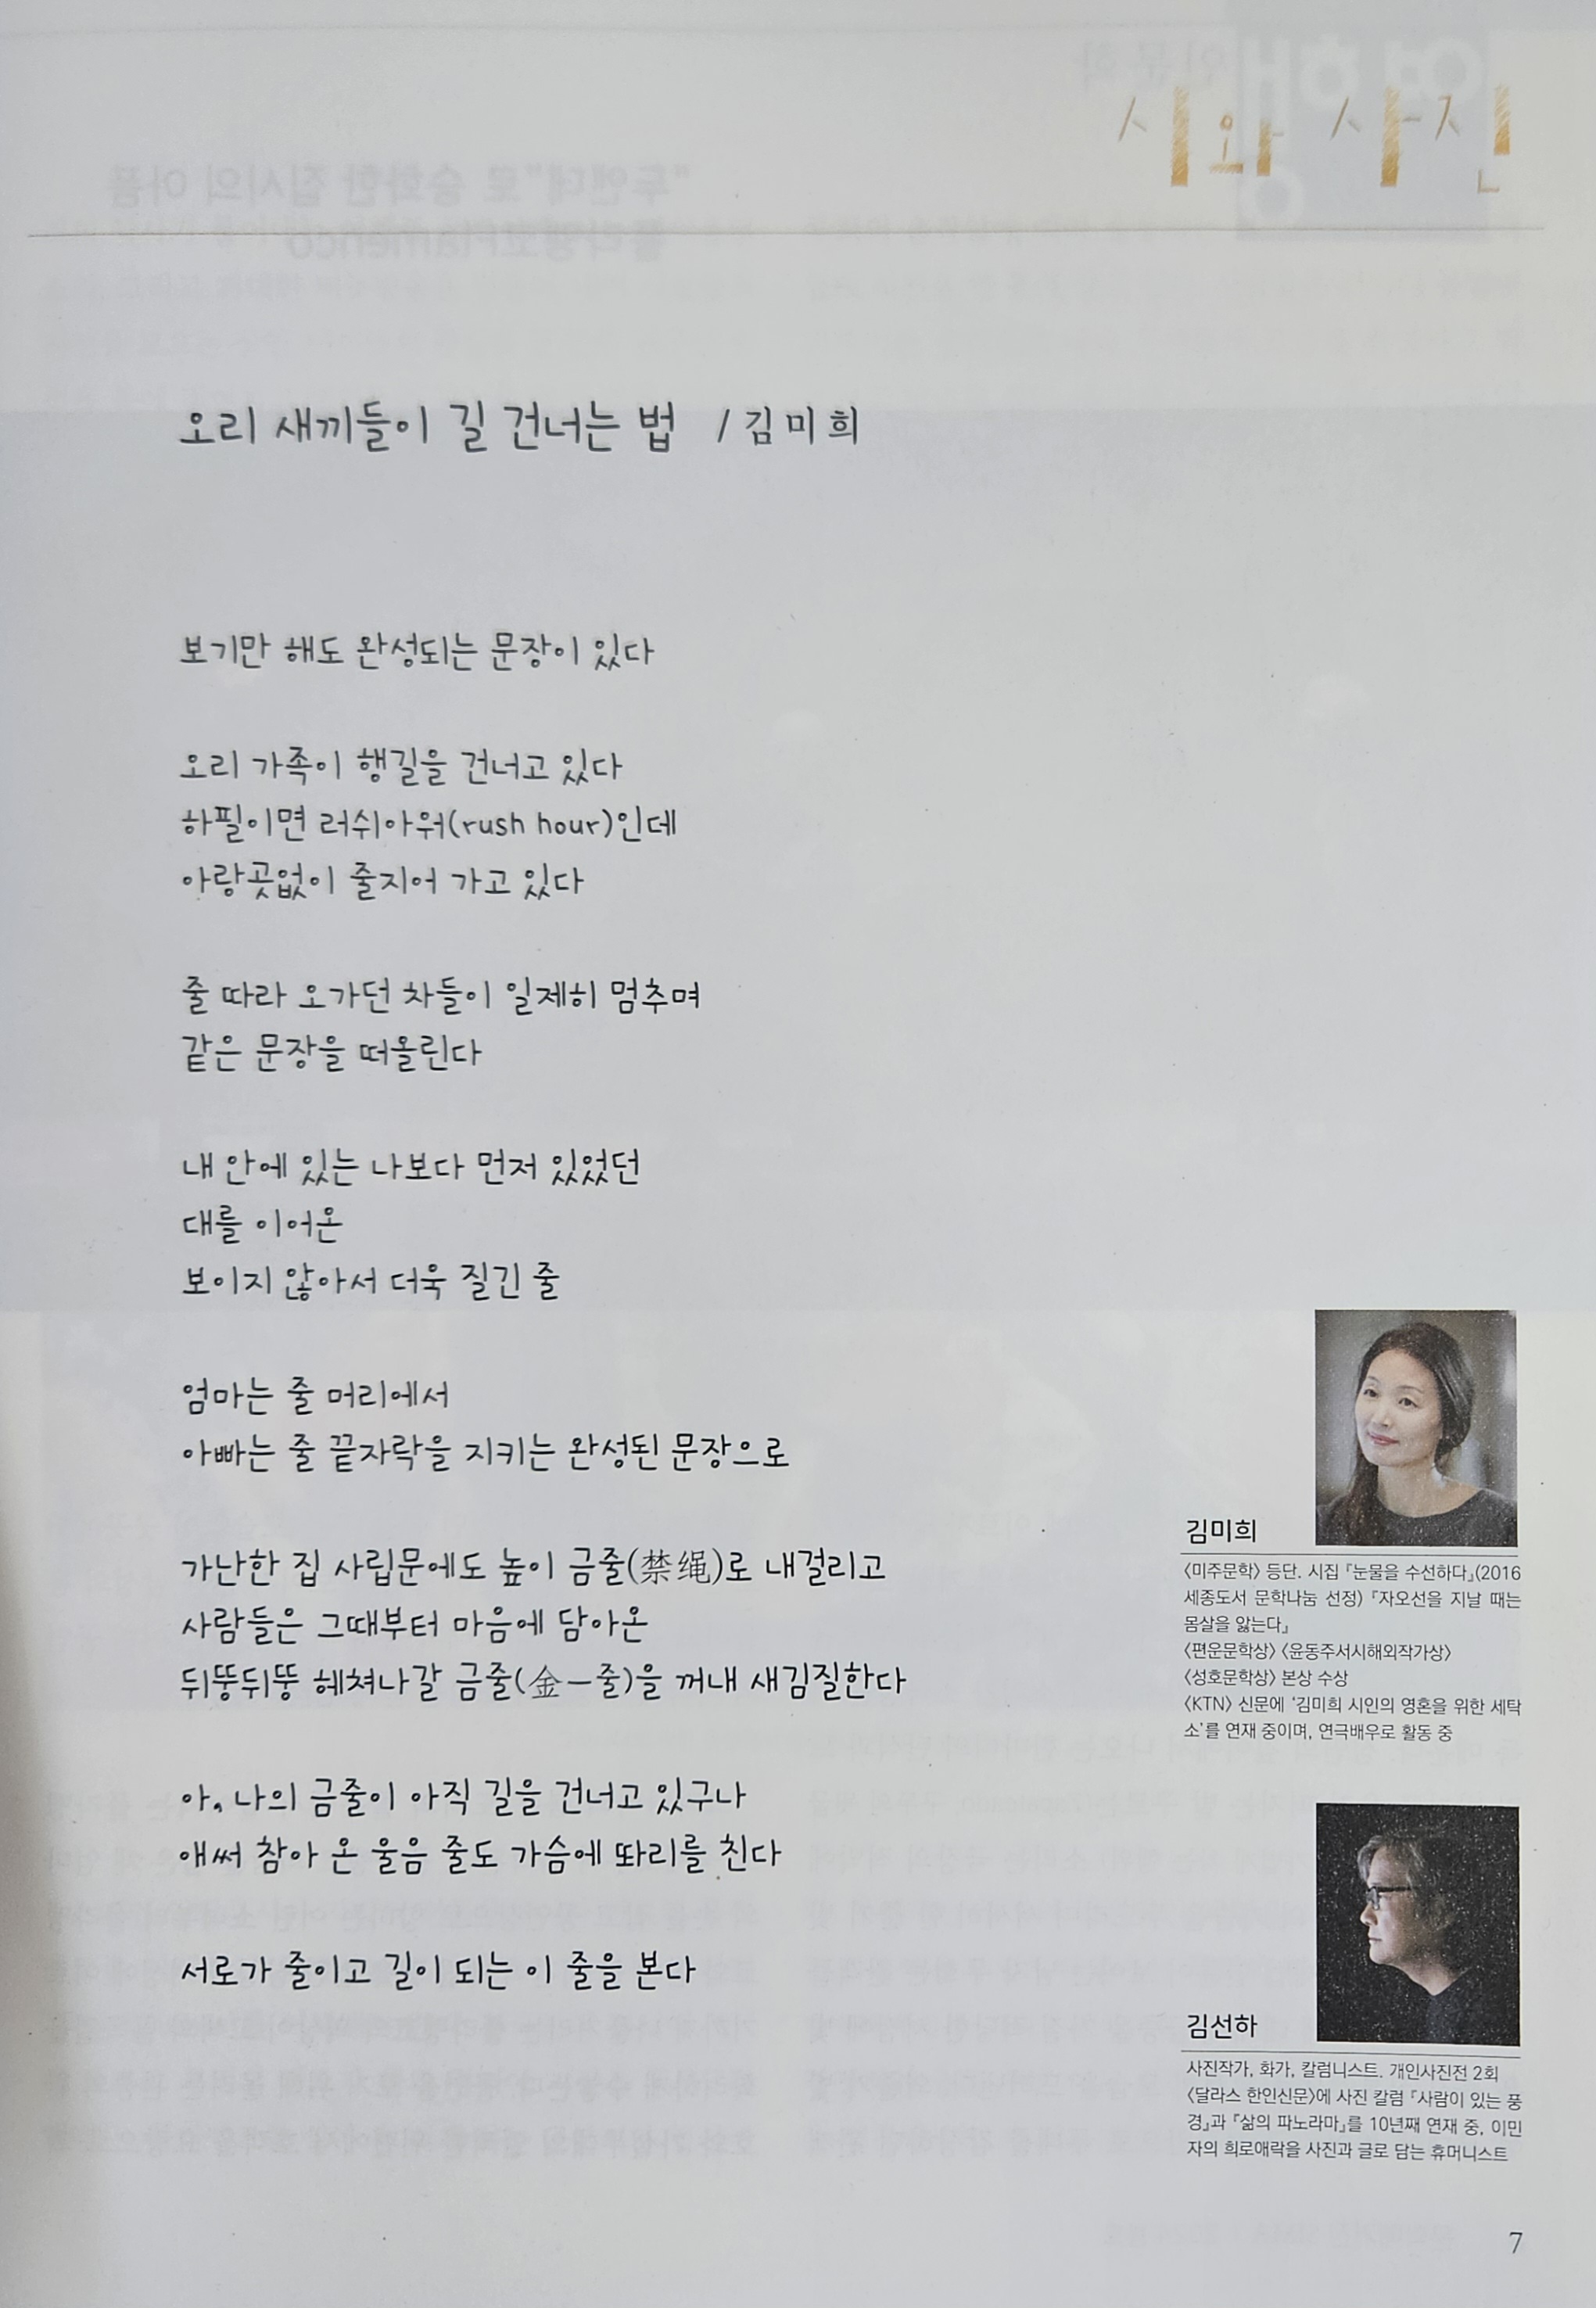 시와 사진
오리 새끼들이 길 건너는 법 / 김미희
보기만 해도 완성되는 문장이 있다
오리 가족이 행길을 건너고 있다
하필이면 러쉬아워(rush hour)인데
아랑곳없이 줄지어 가고 있다
줄 따라 오가던 차들이 일제히 멈추며
같은 문장을 떠올린다
내 안에 있는 나보다 먼저 있었던
대를 이어온
보이지 않아서 더욱 질긴 줄
엄마는 줄 머리에서
아빠는 줄 끝자락을 지키는 완성된 문장으로
가난한 집 사립문에도 높이 금줄(禁绳)로 내걸리고
사람들은 그때부터 마음에 담아온
뒤뚱뒤뚱 헤쳐나갈 금줄(金-줄)을 꺼내 새김질한다
아, 나의 금줄이 아직 길을 건너고 있구나
애써 참아 온 울음 줄도 가슴에 똬리를 친다
서로가 줄이고 길이 되는 이 줄을 본다
김미희
〈미주문학〉 등단. 시집 『눈물을 수선하다』(2016
세종도서 문학나눔 선정) 『자오선을 지날 때는
몸살을 앓는다』
〈편운문학상〉 〈윤동주서시해외작가상〉
〈성호문학상〉 본상 수상
〈KTN〉 신문에 '김미희 시인의 영혼을 위한 세탁
소'를 연재 중이며, 연극배우로 활동 중
김선하
사진작가, 화가, 칼럼니스트. 개인사진전 2회
〈달라스 한인신문〉에 사진 칼럼 『사람이 있는 풍
경』과 『삶의 파노라마』를 10년째 연재 중, 이민
자의 희로애락을 사진과 글로 담는 휴머니스트
7